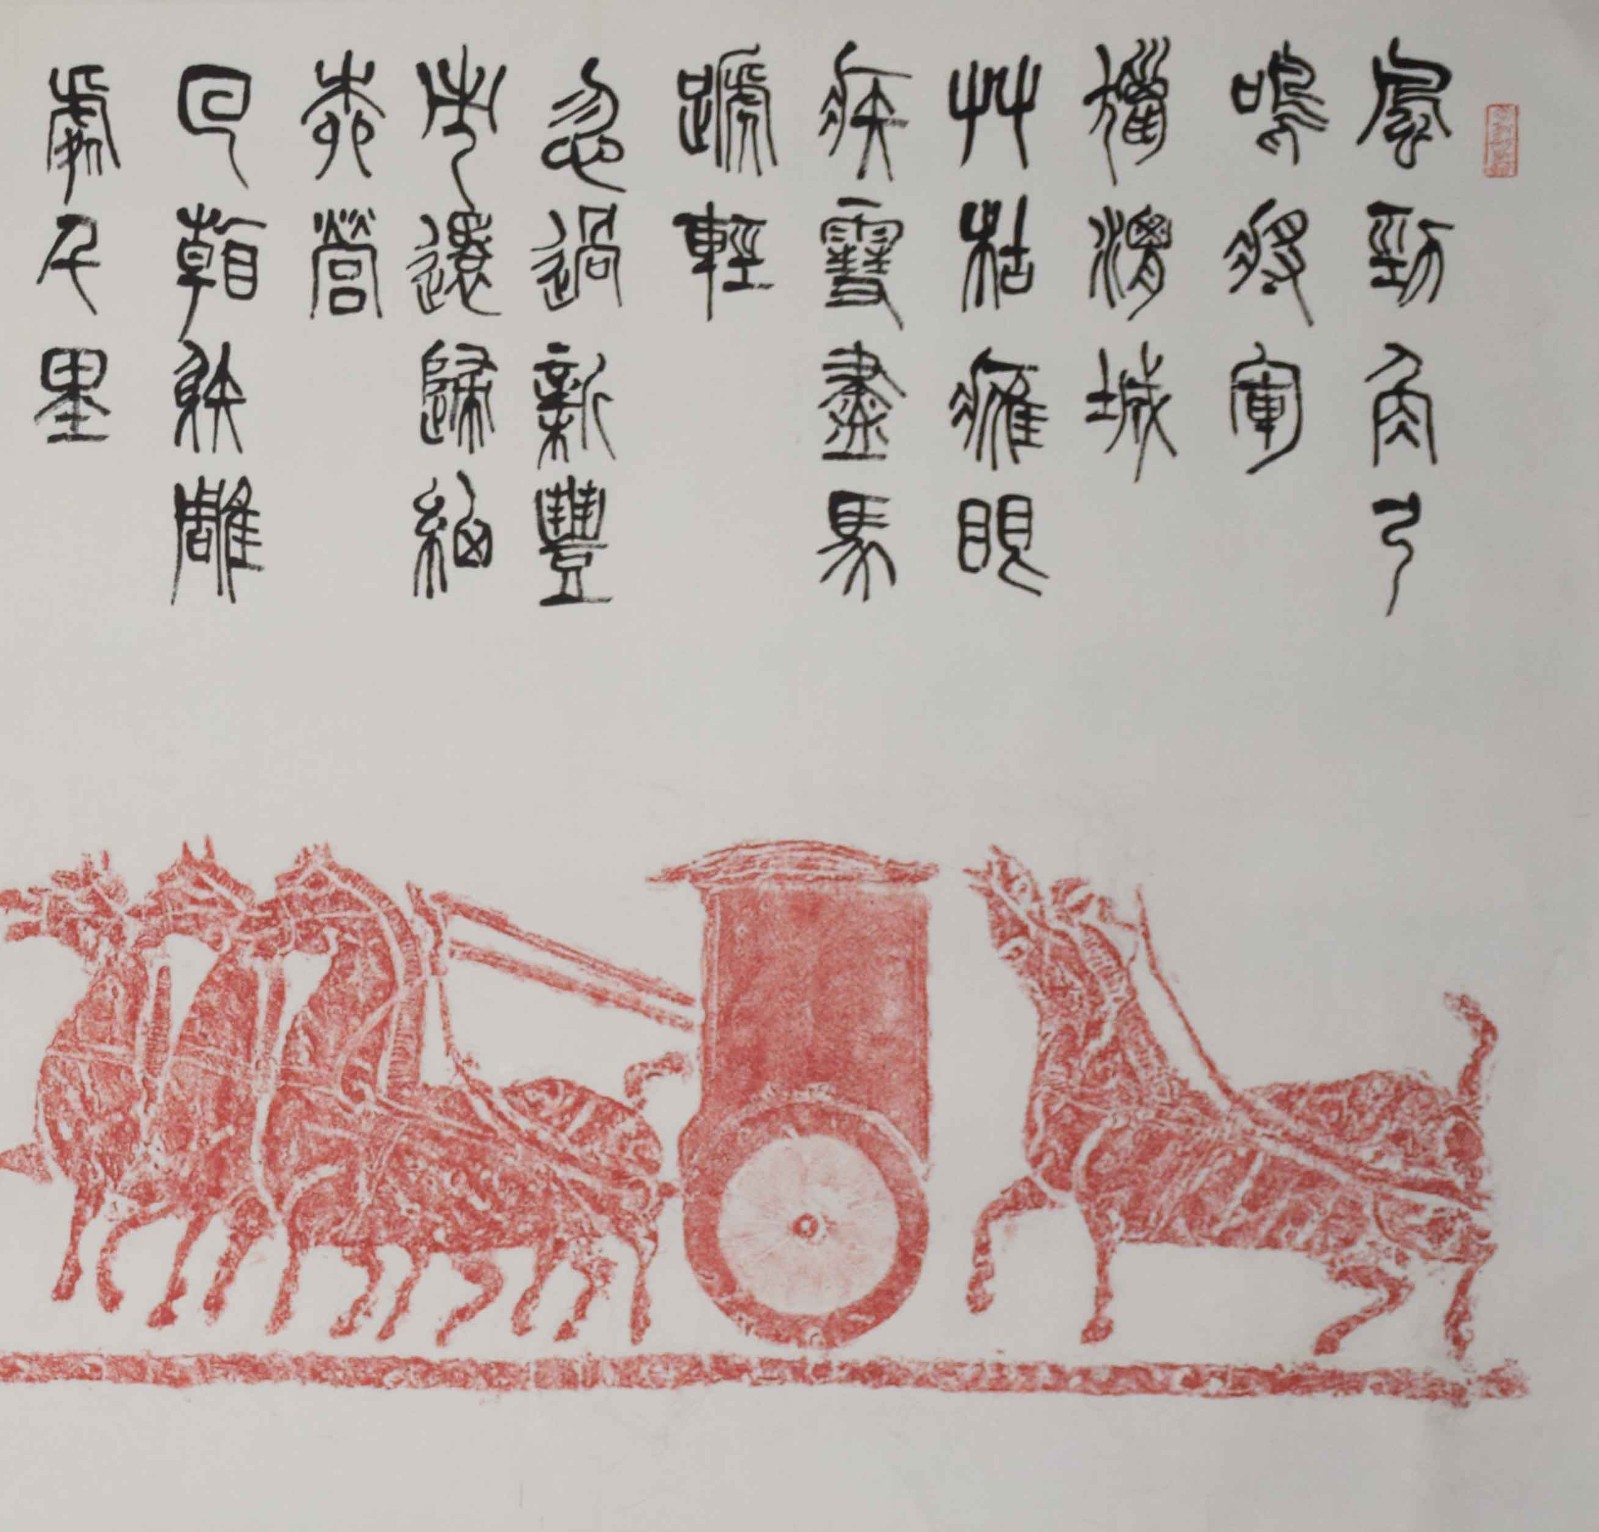 風勁角弓
鳴將軍
獵渭城
艸枯鷹眼
疾雪盡馬
蹏輕
忽過新豐
市還歸細
桺營
回看射雕
處千里